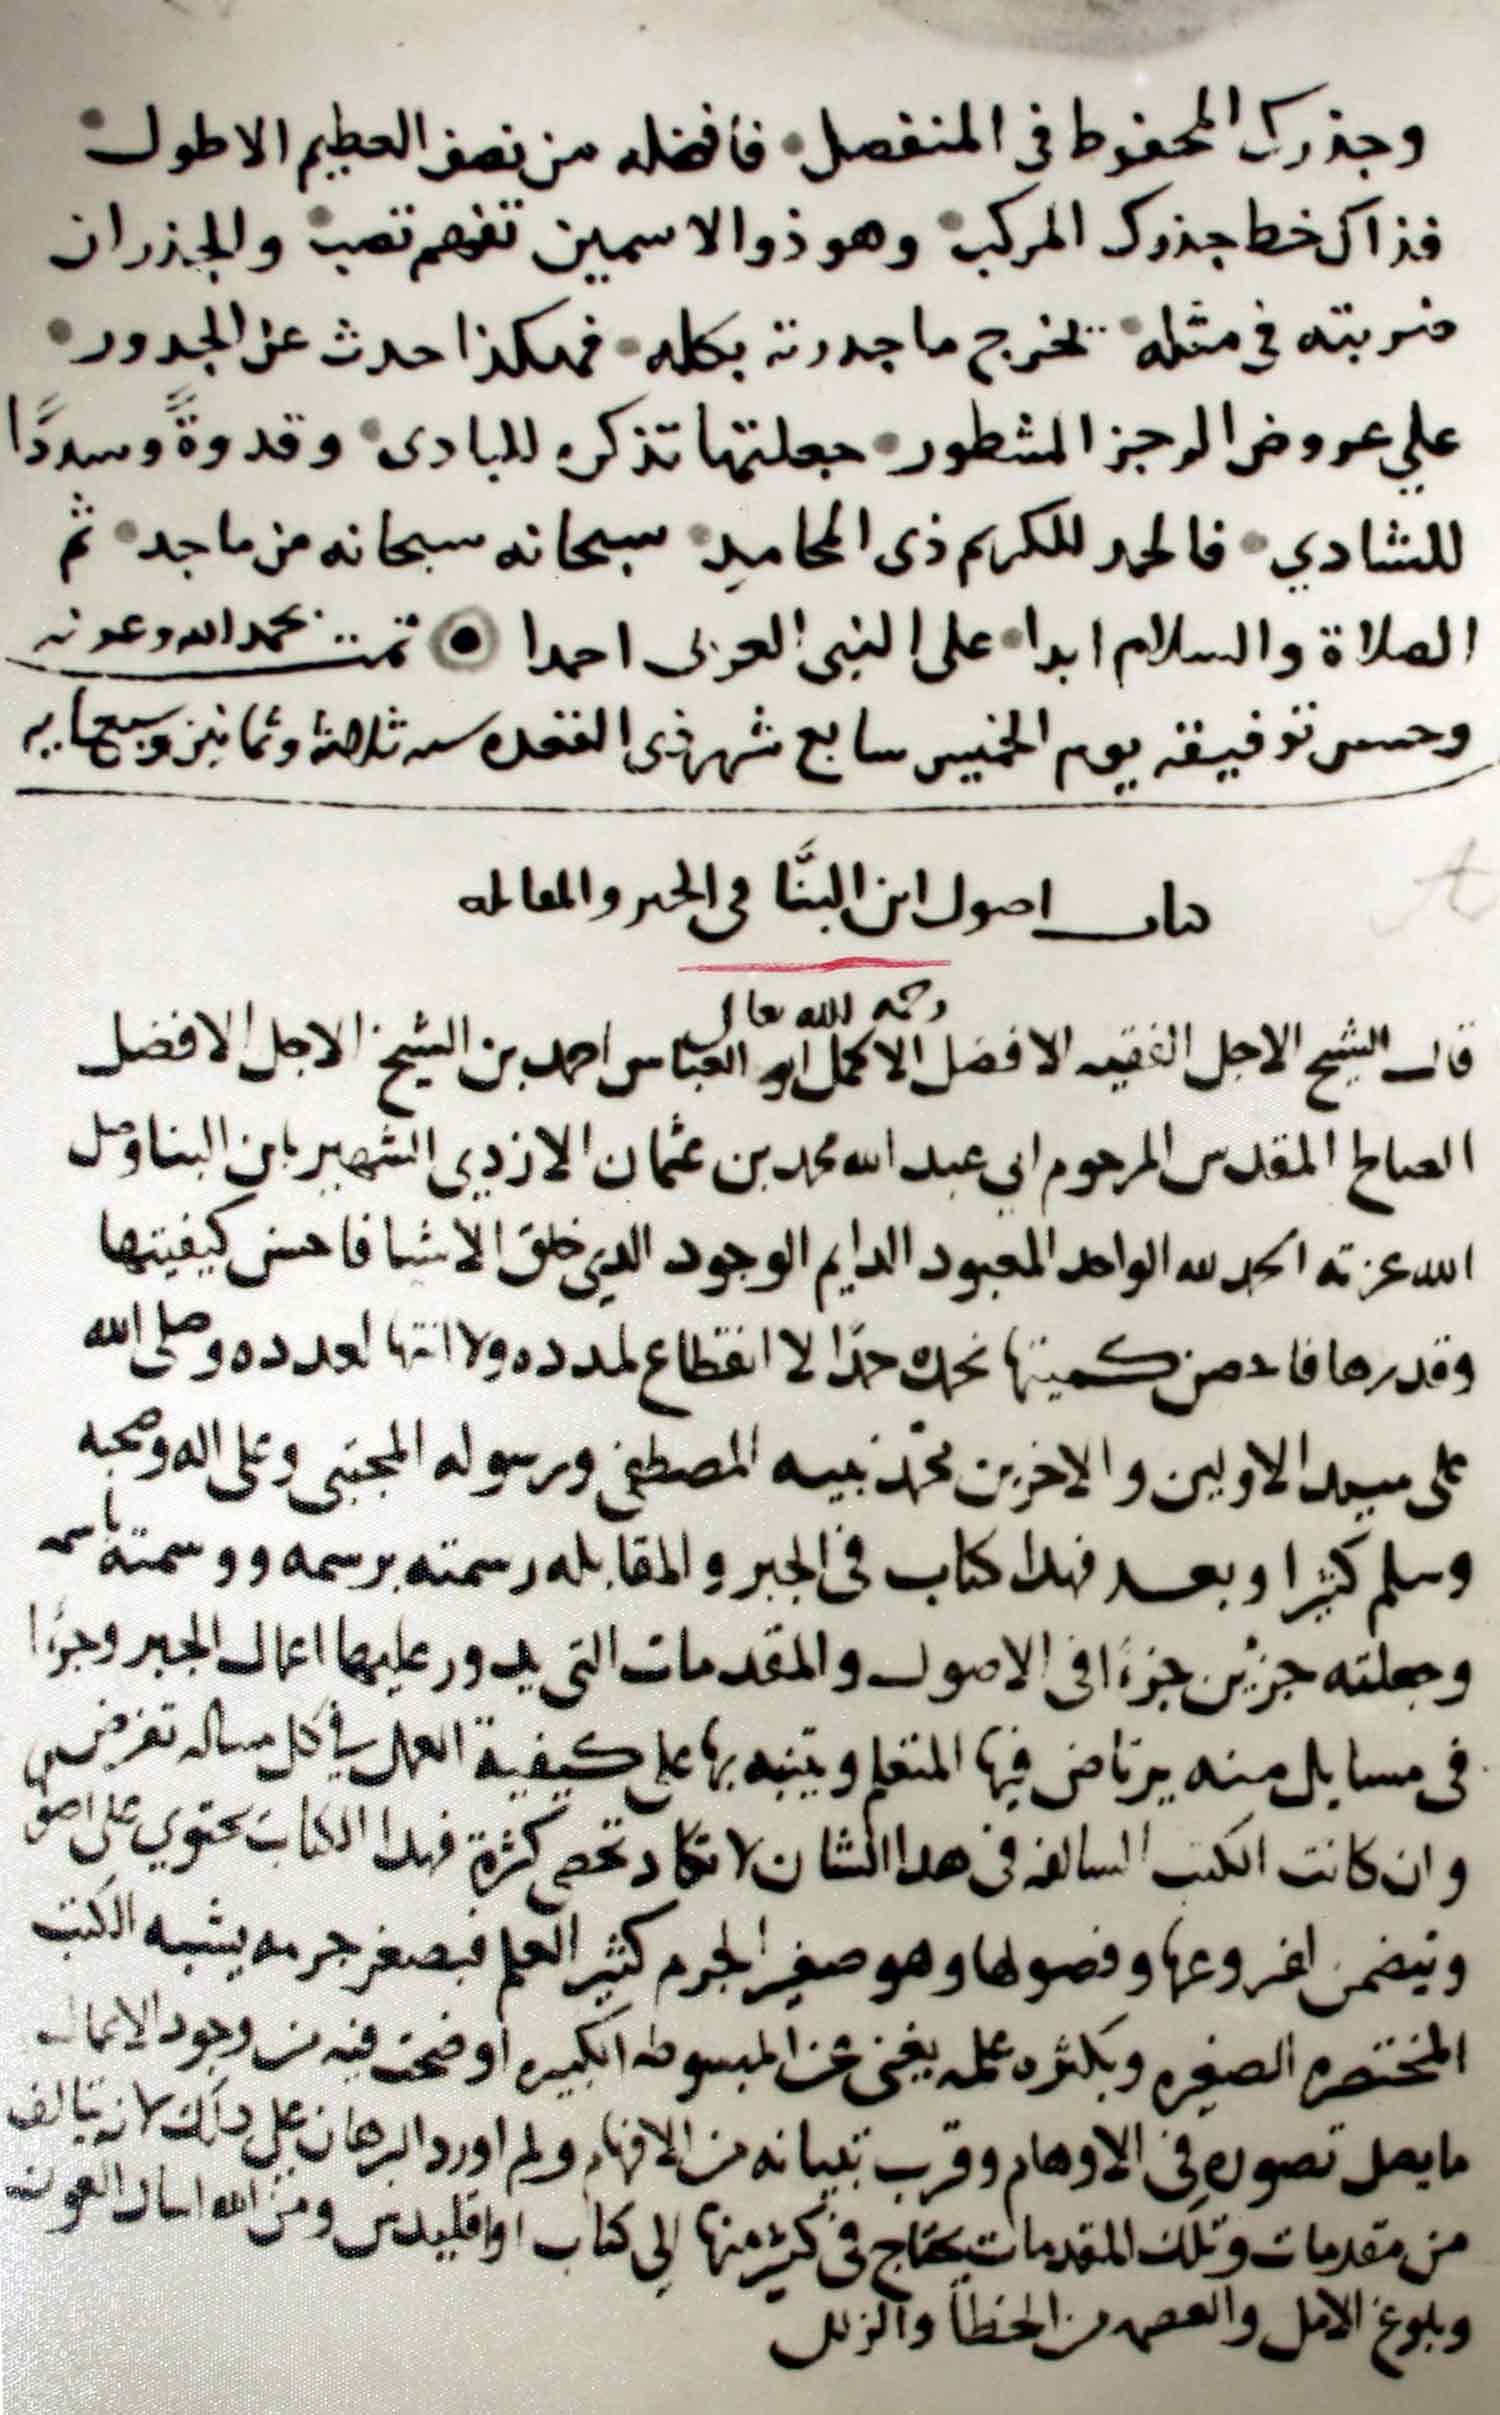 وجذرك المحفوظ فى المنفصل فافضله من نصف العظيم الاطول
فذاك خط جذرك المركب وهو ذو الاسمين تفهم تصب والجذران
ضربته فى مثله تخرج ما جدرته بكله فهكذا حدث عن الجدور
على عروض الرجز المشطور جعلتها تذكره للبادى وقدوةً وسددًا
للشادي فالحمد للكريم ذى المحامد سبحانه سبحانه من ماجد ثم
الصلاة والسلام ابدا على النبى العربى احمدا تمت بحمد الله وعونه
وحسن توفيقه يوم الخميس سابع شهر ذى القعده سنه ثلاثة وثمانين وسبعمايه
كتاب اصول ابن البنَّا فى الجبر والمقابله
رحمه الله تعالى
قال الشيخ الاجل الفقيه الافضل الاكمل ابو العباس احمد بن الشيخ الاجل الافضل
الصالح المقدس المرحوم ابي عبد الله محمد بن عثمان الازدي الشهير بابن البنا وصل
الله عزته الحمد لله الواحد المعبود الدايم الوجود الدي خلق الاشيا فاحسن كيفيتها
وقدرها فاحصن كميتها نحمده حمدًا لا انقطاع لمدده ولا انتها لعدده وصلى الله
على سيد الاولين والاخرين محمد نبيه المصطفى ورسوله المجتبى وعلى اله وصحبه
وسلم كثيرا وبعد فهدا كتاب فى الجبر والمقابله رسمته برسمه ووسمته باسمه
وجعلته جزئين جزءًا فى الاصول والمقدمات التى يدور عليها اعمال الجبر وجزءًا
فى مسايل منه يرتاض فيها المتعلم ويتنبه بها على كيفية العمل في كل مساله تفرض
وان كانت الكتب السالفه فى هدا الشان لا تكاد تحصى كثرة فهدا الكتاب يحتوي على اصو
ويتضمن لفروعها وفصولها وهو صغير الجرم كثير العلم فبصغر جرمه يشبه الكتب
المختصره الصغيره وبكثره علمه يغنى عن المبسوطه الكبيره اوضحت فيه من وجود الاعمال
ما يصل تصوره في الاوهام وقرب تبيانه من الافهام ولم اورد البرهان على دلك لانه يتالف
من مقدمات وتلك المقدمات يحتاج فى كثير منها إلى كتاب اواقليدس ومن الله اسال العون
وبلوغ الامل والعصمه من الخطأ والزلل